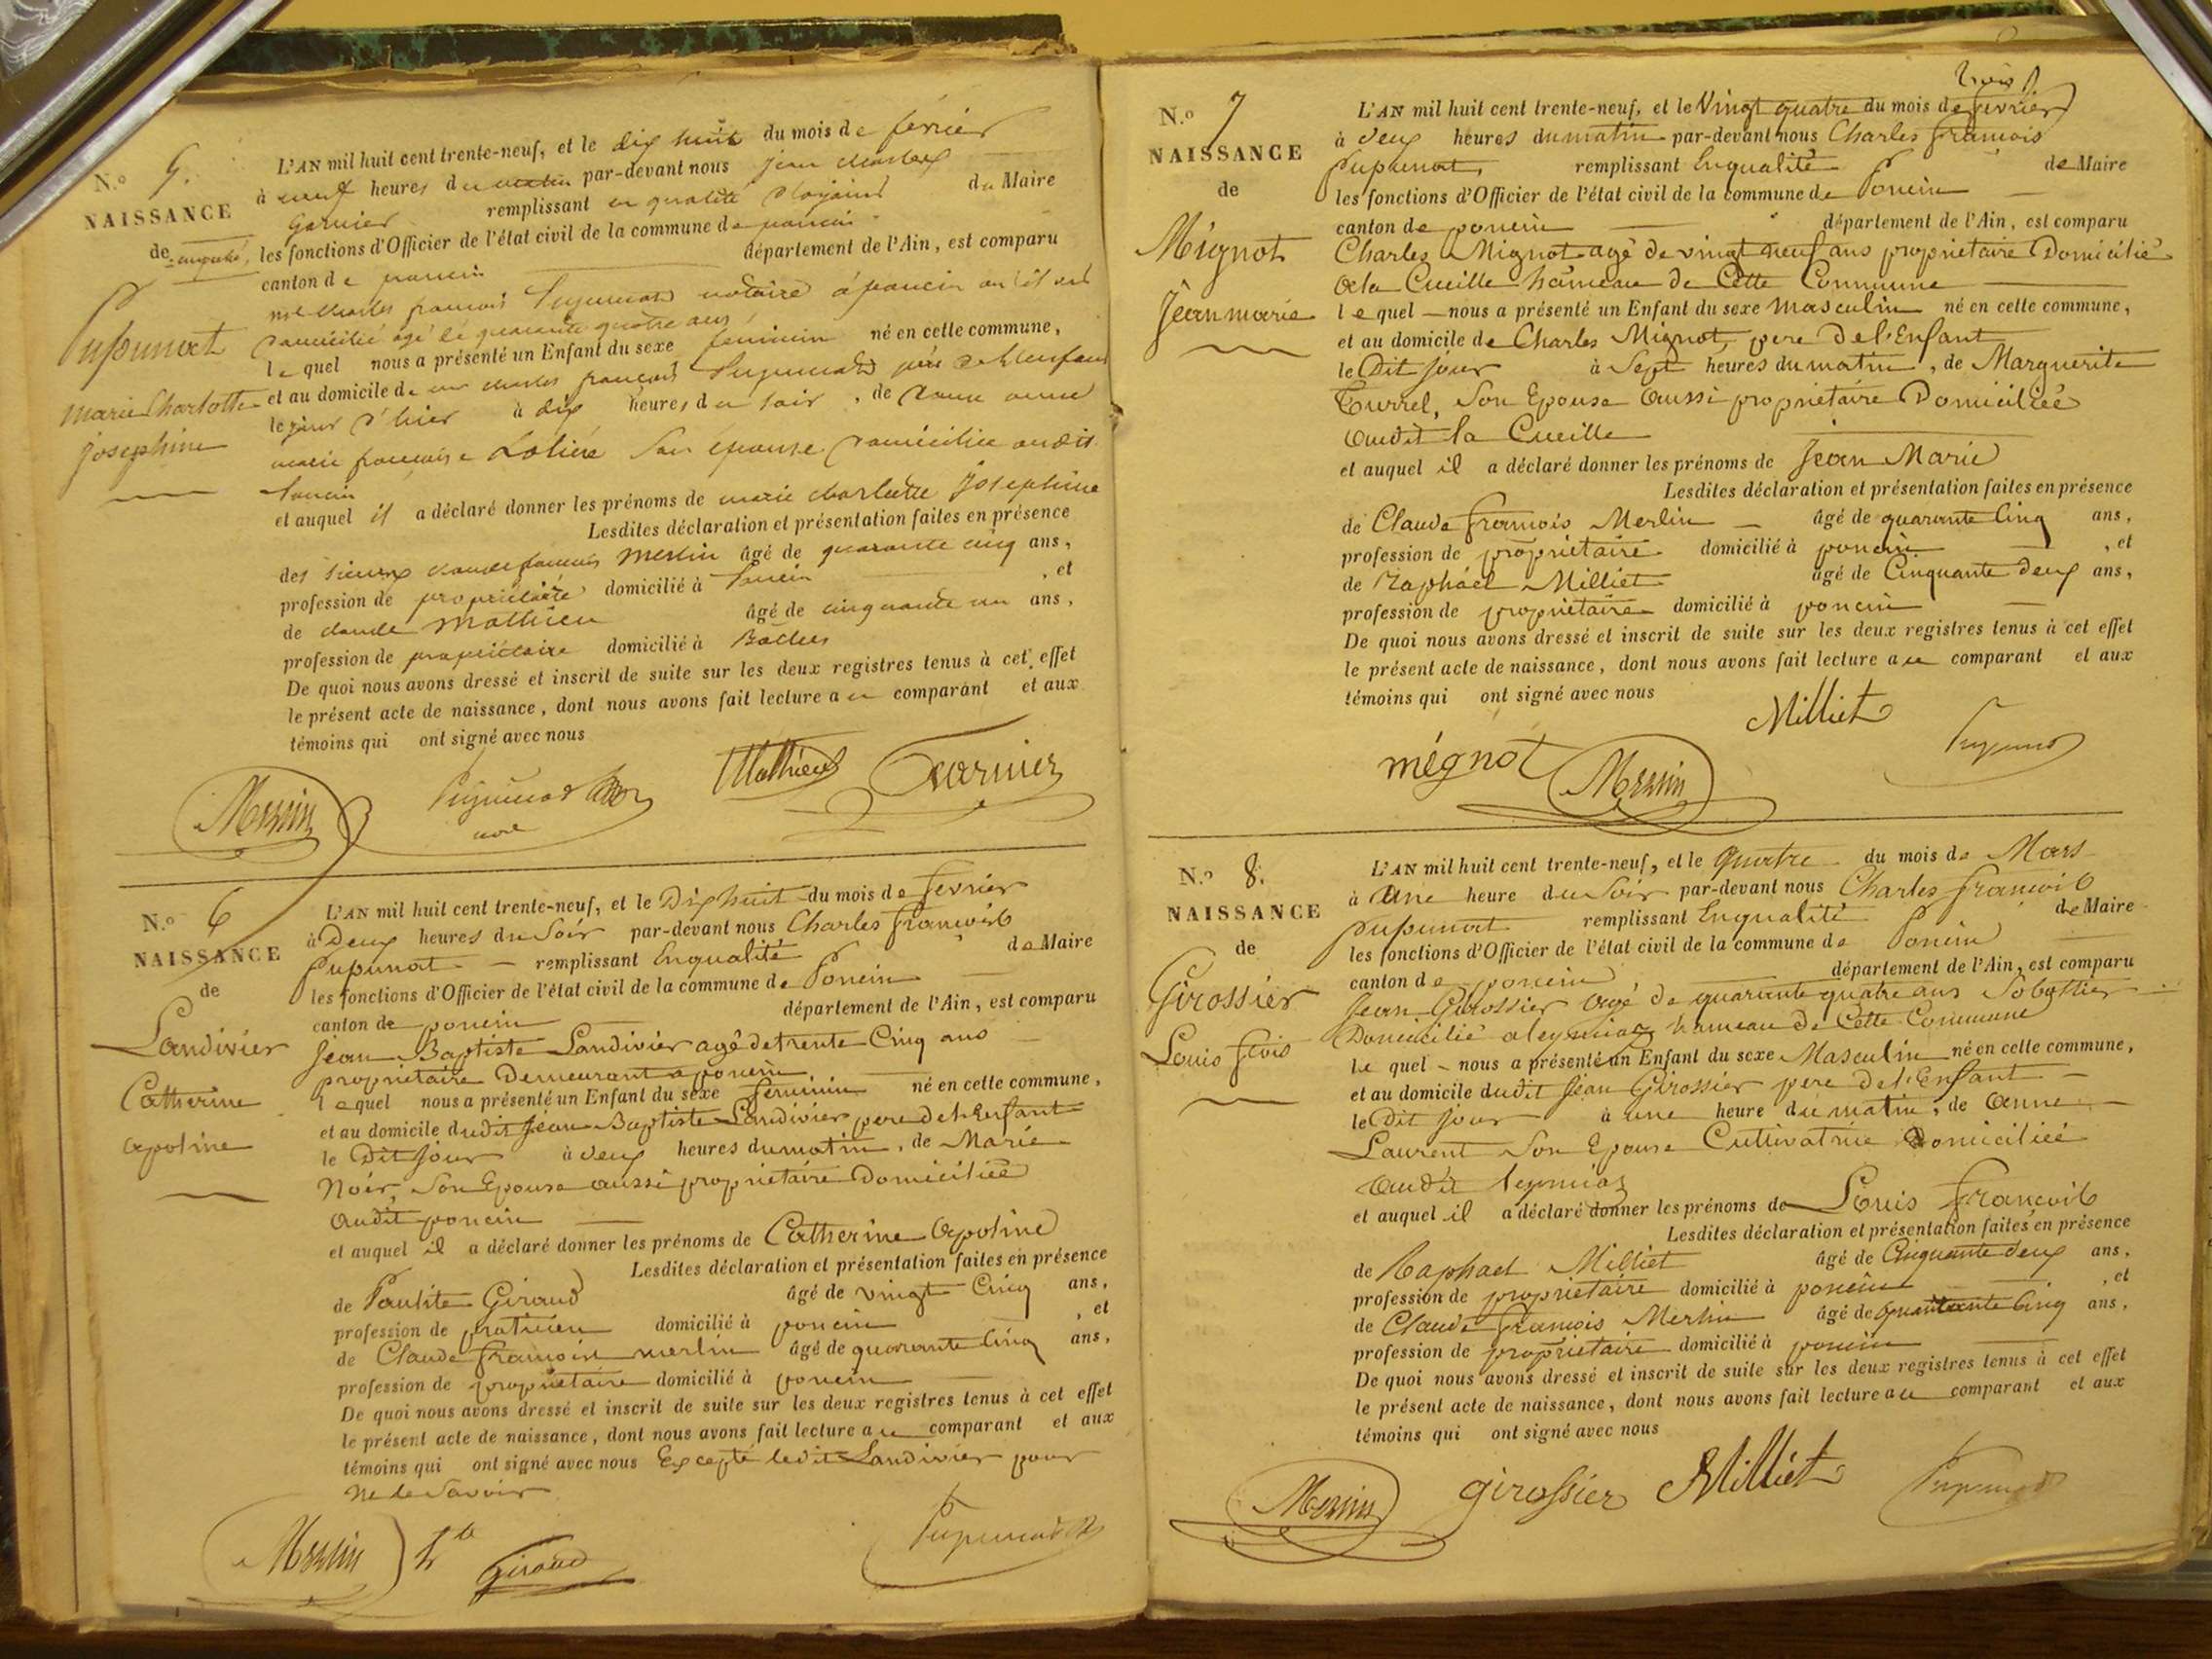 N.o 5.
NAISSANCE
de
Pupunat
marie Charlotte
josephine
L'AN mil huit cent trente-neuf, et le dix huit du mois de fevrier
à neuf heures du matin par-devant nous jean charles
Garnier remplissant en qualité d'adjoint du Maire
les fonctions d'Officier de l'état civil de la commune de poncin
canton de poncin département de l'Ain, est comparu
charles françois Pupunat notaire à poncin où il est
domicilié agé de quarante quatre ans
lequel nous a présenté un Enfant du sexe feminin né en cette commune,
et au domicile de charles françois Pupunat père de l'enfant
le jour d'hier à dix heures du soir, de dame anne
marie françoise son epouse domiciliée audit
Poncin
et auquel il a déclaré donner les prénoms de marie charlotte josephine
Lesdites déclaration et présentation faites en présence
des sieurs claude francois Merlin âgé de quarante cinq ans,
profession de propriétaire domicilié à Poncin, et
de claude Mathieu âgé de cinquante un ans,
profession de propriétaire domicilié à
De quoi nous avons dressé et inscrit de suite sur les deux registres tenus à cet effet
le présent acte de naissance, dont nous avons fait lecture au comparant et aux
témoins qui ont signé avec nous
Merlin Pupunat Mathieu Garnier
N.o 6
NAISSANCE
de
Landivier
Catherine
apoline
L'AN mil huit cent trente-neuf, et le Dix huit du mois de fevrier
à Deux heures du Soir par-devant nous Charles françois
Pupunat remplissant Enqualité de Maire
les fonctions d'Officier de l'état civil de la commune de Poncin
canton de poncin département de l'Ain, est comparu
Jean Baptiste Landivier agé de trente Cinq ans
propriétaire Demeurant a poncin
lequel nous a présenté un Enfant du sexe feminin né en cette commune,
et au domicile dudit Jean Baptiste Landivier pere de l'Enfant
le Dit jour à deux heures du matin, de Marie
Noir, Son Epouse aussi propriétaire Domiciliée
audit poncin
et auquel il a déclaré donner les prénoms de Catherine Apoline
Lesdites déclaration et présentation faites en présence
de Paulite Giraud âgé de vingt Cinq ans,
profession de praticien domicilié à poncin, et
de Claude françois merlin âgé de quarante Cinq ans,
profession de propriétaire domicilié à poncin
De quoi nous avons dressé et inscrit de suite sur les deux registres tenus à cet effet
le présent acte de naissance, dont nous avons fait lecture au comparant et aux
témoins qui ont signé avec nous Excepté ledit Landivier pour
ne le Savoir
Merlin Giraud Pupunat
N.o 7
NAISSANCE
de
Mignot
Jean marie
trois
L'AN mil huit cent trente-neuf, et le Vingt quatre du mois de fevrier
à deux heures du matin par-devant nous Charles françois
Pupunat, remplissant Enqualité de Maire
les fonctions d'Officier de l'état civil de la commune de Poncin
canton de poncin département de l'Ain, est comparu
Charles Mignot agé de vingt neuf ans propriétaire Domicilié
a la Cueille hameau de Cette Commune
lequel nous a présenté un Enfant du sexe masculin né en cette commune,
et au domicile de Charles Mignot, pere de l'Enfant
le Dit jour à Sept heures du matin, de Marguerite
Turrel, Son Epouse aussi propriétaire Domiciliée
audit la Cueille
et auquel il a déclaré donner les prénoms de Jean Marie
Lesdites déclaration et présentation faites en présence
de Claude françois Merlin âgé de quarante Cinq ans,
profession de propriétaire domicilié à poncin, et
de Raphaël Milliet âgé de Cinquante deux ans,
profession de propriétaire domicilié à poncin
De quoi nous avons dressé et inscrit de suite sur les deux registres tenus à cet effet
le présent acte de naissance, dont nous avons fait lecture au comparant et aux
témoins qui ont signé avec nous
Milliet
mégnot Merlin Pupunat
N.o 8.
NAISSANCE
de
Girossier
Louis fcois
L'AN mil huit cent trente-neuf, et le quatre du mois de Mars
à Une heure du Soir par-devant nous Charles françois
pupunat remplissant Enqualité de Maire
les fonctions d'Officier de l'état civil de la commune de Poncin
canton de poncin département de l'Ain, est comparu
Jean Girossier agé de quarante quatre ans Sobottier
Domicilié a leymiaz hameau de Cette Commune
lequel nous a présenté un Enfant du sexe Masculin né en cette commune,
et au domicile dudit Jean Girossier pere de l'Enfant
le Dit jour à une heure du matin, de Anne
Laurent Son Epouse Cultivatrice Domiciliée
audit leymiaz
et auquel il a déclaré donner les prénoms de Louis françois
Lesdites déclaration et présentation faites en présence
de Raphael Milliet âgé de Cinquante deux ans,
profession de propriétaire domicilié à poncin, et
de Claude françois Merlin âgé de quarante Cinq ans,
profession de propriétaire domicilié à poncin
De quoi nous avons dressé et inscrit de suite sur les deux registres tenus à cet effet
le présent acte de naissance, dont nous avons fait lecture au comparant et aux
témoins qui ont signé avec nous
Merlin girossier Milliet Pupunat